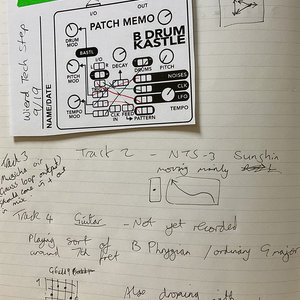 I/O
OUT
PATCH MEMO
B DRUM
KASTLE
DRUM
MOD
BASTL
I/O
DECAY
DRUMS
PITCH
PITCH
MOD
NOISES
CLK
LFO
TEMPO
MOD
CLK
IN
FEED
TEMPO
PATTERN
NAME/DATE
Wierd Tech Step
9/19
Track 3
loop output
in + out
in mix
Track 2 - NTS-3 Sunshin
moving mainly
Track 4 Guitar - Not yet recorded
Playing sort of B Phrygian / ordinary G major
around 7th fret
Also droning with